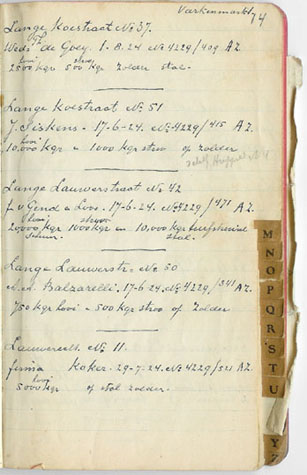 Varkenmarkt 74
Lange Koestraat No 37.
Wed. de Goey. 1-8-24. No 4229/409 A.Z.
hooi stroo
2500 kgr 500 kgr zolder stal.
Lange Koestraat No 51
J. Siskens. 17-6-24. No 4229/415 A.Z.
hooi
10,000 kgr = 1000 kgr stroo op zolder
Lange Lauwerstraat No 42
f. v Gend & Loos. 17-6-24. No 4229/471 A.Z.
hooi stroo
20000 kgr 1000 kgr en 10,000 kgr turfstrooisel
schuur. stal.
Lange Lauwerstr. No 50
Balzarelli. 17-6-24. No 4229/341 A.Z.
750 kgr hooi = 500 kgr stroo op zolder
Lauwerecht. No 11.
firma Koker. 29-7-24. No 4229/521 A.Z.
hooi
5000 kgr op stal zolder.
M
N
O
P
Q
R
S
T
U
Y
Z